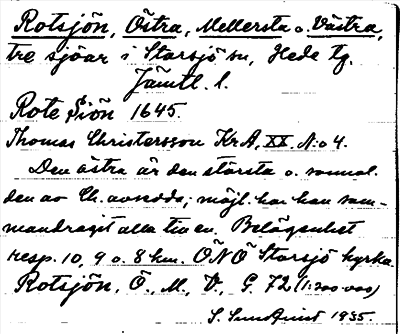 Rotsjön, Östra, Mellersta o. Västra,
tre sjöar i Storsjö sn, Hede tg.
Jämtl. l.
Rote Siön 1645.
Thomas Christersson KrA, XX, N:o 4.
Den östra är den största o. sannol.
den av Ch. avsedda; möjl. har han sam-
mandragit alla tre en. Belägenhet
resp. 10, 9 o. 8 km. ÖNÖ Storsjö kyrka.
Rotsjön, Ö., M., V., G. 72 (1:200 000)
S. Sundquist 1935.